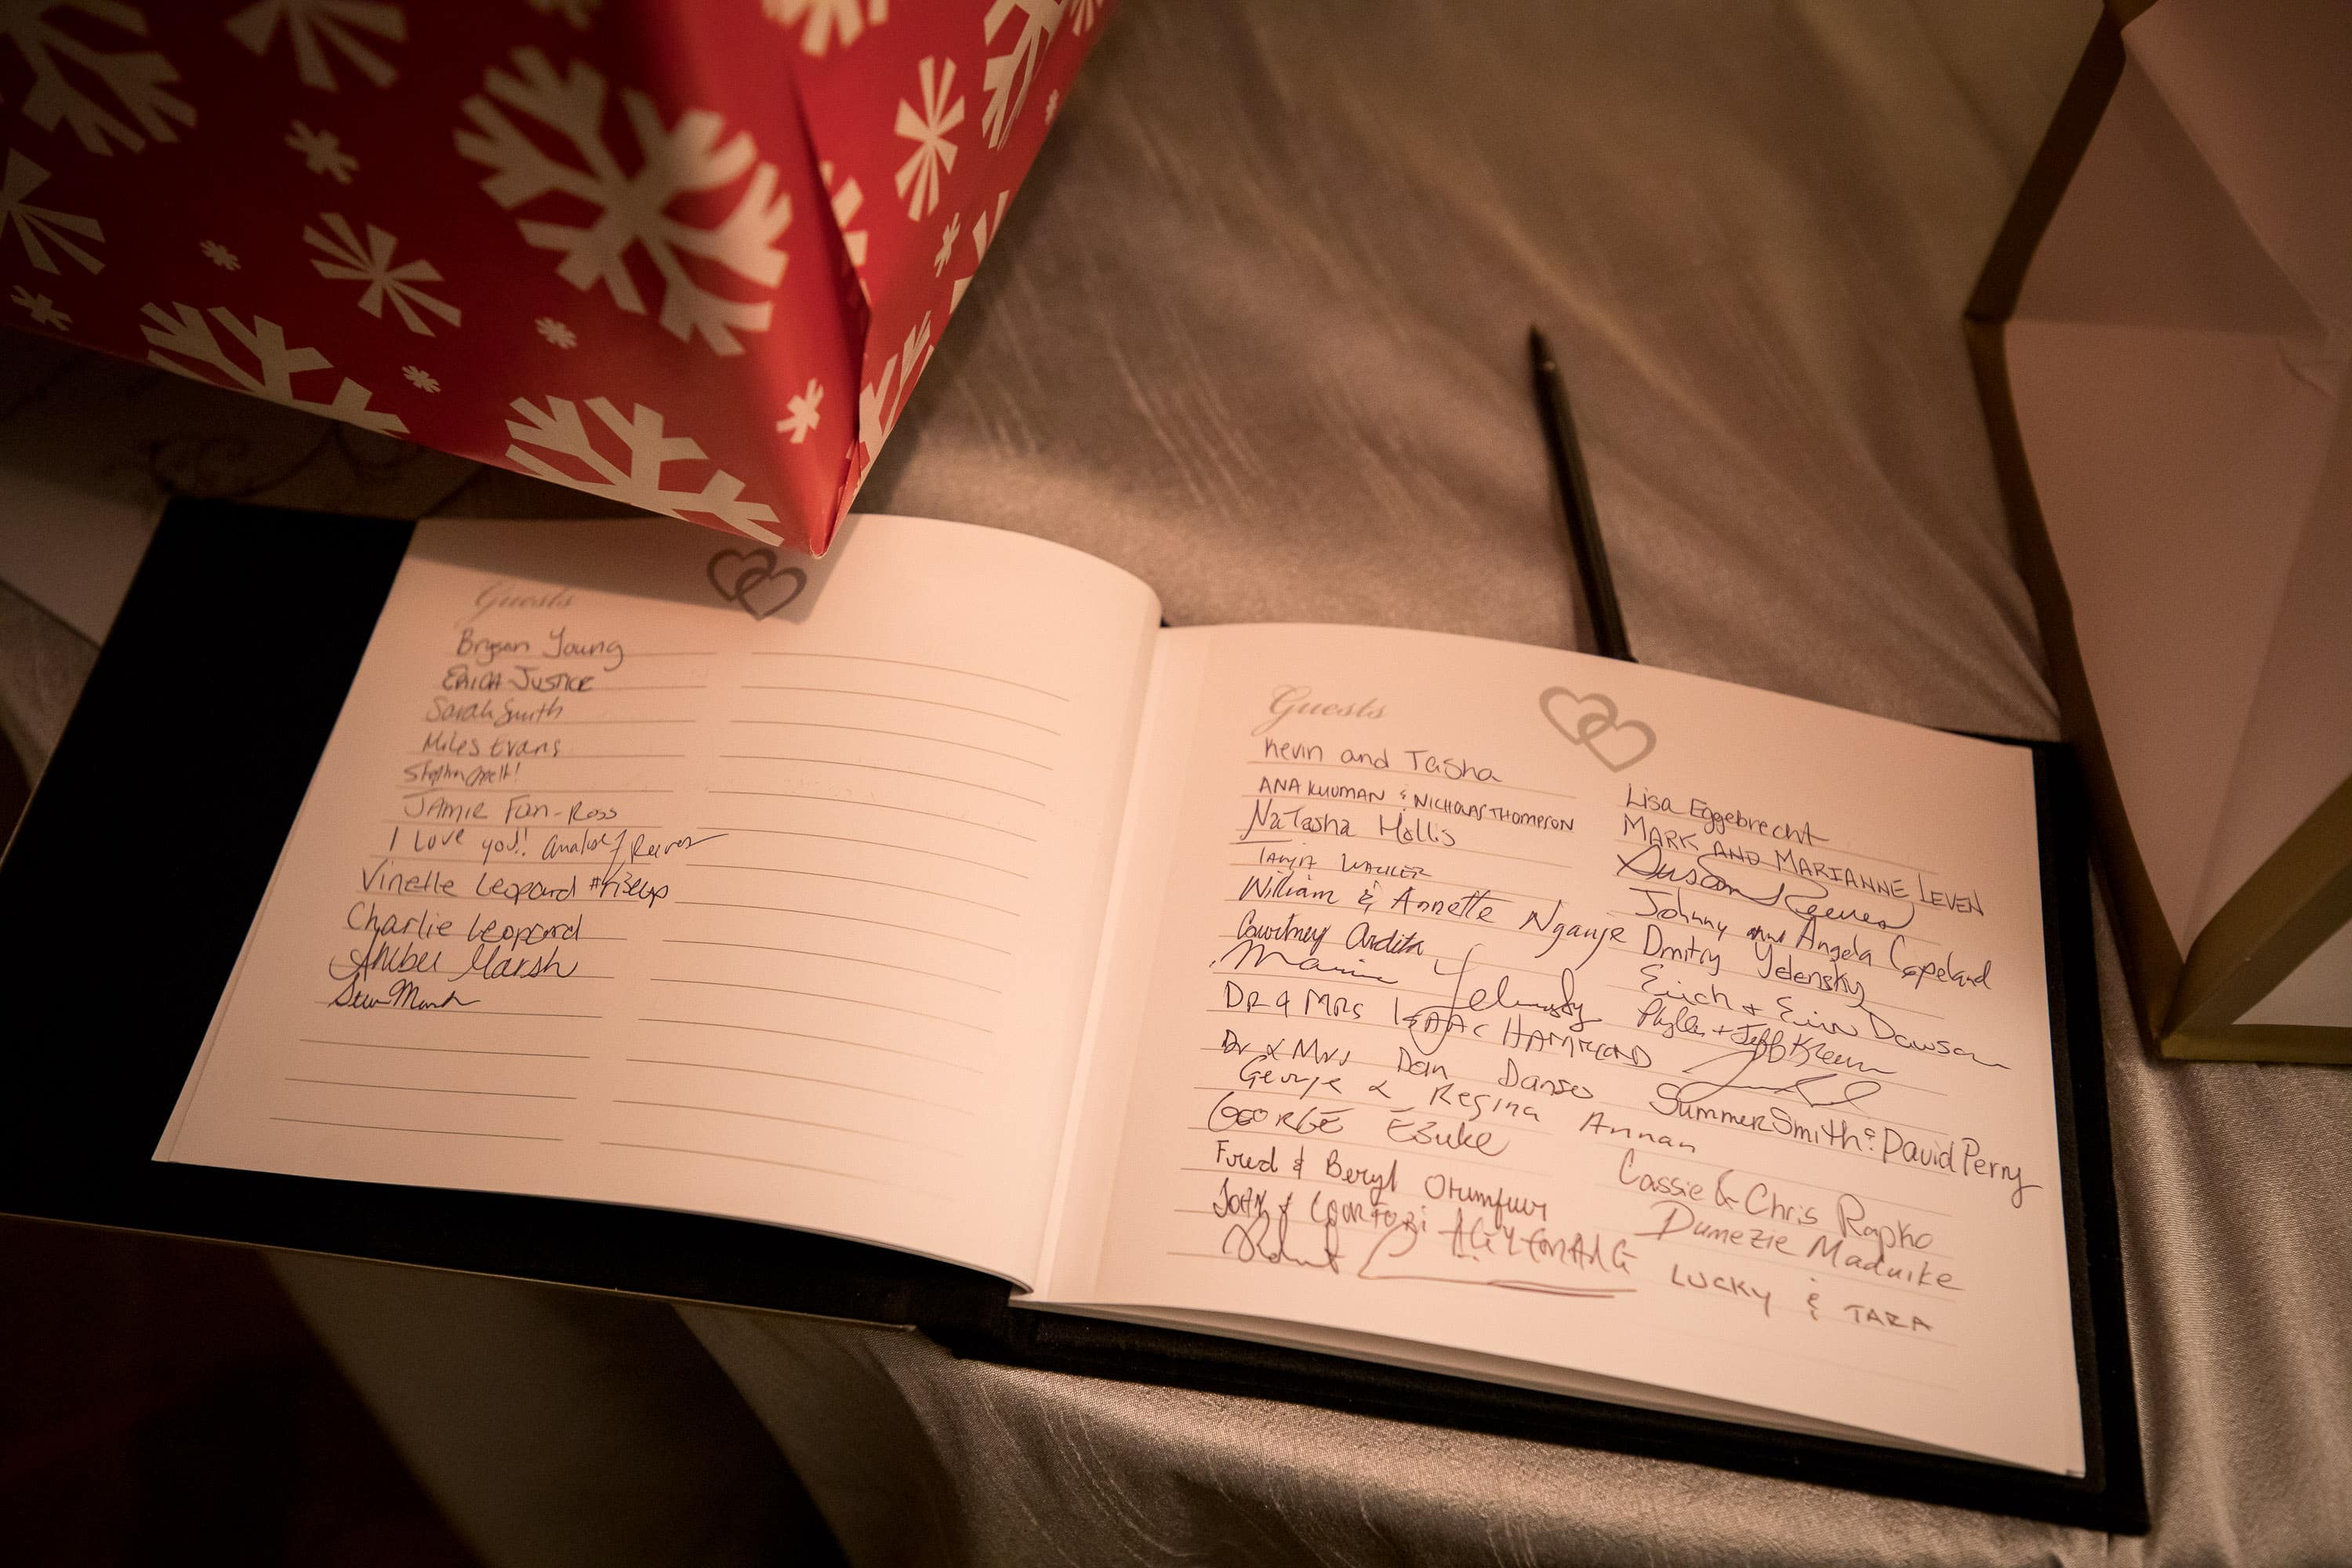 Guests
Bryson Young
ERICA JUSTICE
Sarah Smith
Miles Evans
JAMIE Fun-Ross
I Love you!! Reeves
Vinelle Leopard #riseup
Charlie Leopard
Amber Marsh
Guests
Kevin and Tasha
ANA & NICHOLAS THOMPSON
NaTasha Hollis
William & Annette Nganje
Courtney
DR & MRS ISAAC HAMMOND
Dr & Mrs Dan Danso
George & Regina Annan
GEORGE EBUKE
Fred & Beryl
JOHN &
Robert
Lisa Eggebrecht
MARK AND MARIANNE LEVEN
Susan Reeves
Johnny and Angela Copeland
Dmitry Yelensky
Erich + Erin Dawson
Phyllis + Jeff
Summer Smith & David Perry
Cassie & Chris Rapko
Dumezie Maduike
LUCKY & TARA